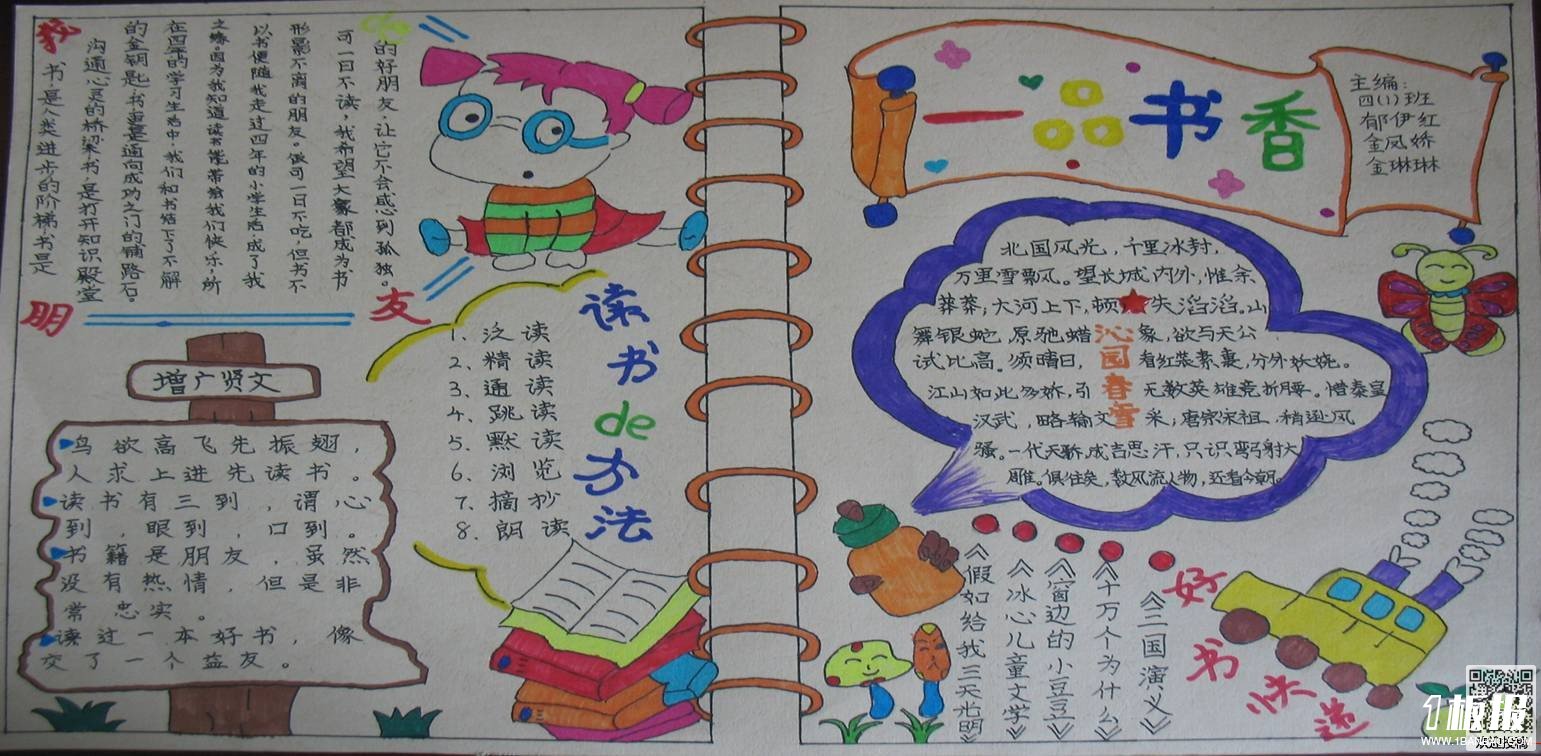 我
de
朋
友
书,是人类进步的阶梯,书是
沟通心灵的桥梁,书,是打开知识殿堂
的金钥匙,书更是通向成功之门的铺路石。
在四年的学习生活中,我们和书结下了不解
之缘。因为我知道读书能带给我们快乐,所
以书便随我走过四年的小学生活,成了我
形影不离的朋友。做可一日不吃,但书不
可一日不读,我希望大家都成为书
的好朋友,让它不会感到孤独。
增广贤文
鸟欲高飞先振翅,
人求上进先读书。
读书有三到,谓心
到,眼到,口到。
书籍是朋友,虽然
没有热情,但是非
常忠实。
读过一本好书,像
交了一个益友。
读书de方法
1. 泛读
2. 精读
3. 通读
4. 跳读
5. 默读
6. 浏览
7. 摘抄
8. 朗读
一品书香
主编:
四(1)班
郁伊红
金凤娇
金琳琳
沁园春雪
北国风光,千里冰封,
万里雪飘风。望长城内外,惟余
莽莽;大河上下,顿失滔滔。山
舞银蛇,原驰蜡象,欲与天公
试比高。须晴日,看红装素裹,分外妖娆。
江山如此多娇,引无数英雄竞折腰。惜秦皇
汉武,略输文采;唐宗宋祖,稍逊风
骚。一代天骄,成吉思汗,只识弯弓射大
雕。俱往矣,数风流人物,还看今朝。
好书快递
《三国演义》
《十万个为什么》
《窗边的小豆豆》
《冰心儿童文学》
《假如给我三天光明》
1板报
WWW.1BANBAO.COM
欢迎投稿